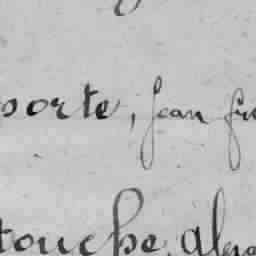 sorte, jean fr
touche, alex